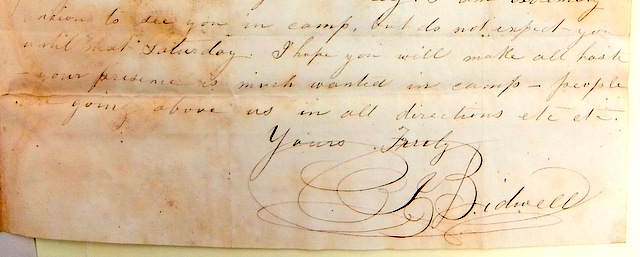 I am extremely
anxious to see you in camp, but do not expect you
until next Saturday. I hope you will make all haste
- your presence is much wanted in camp - people
are going above us in all directions etc etc.
Yours Truly
J Bidwell